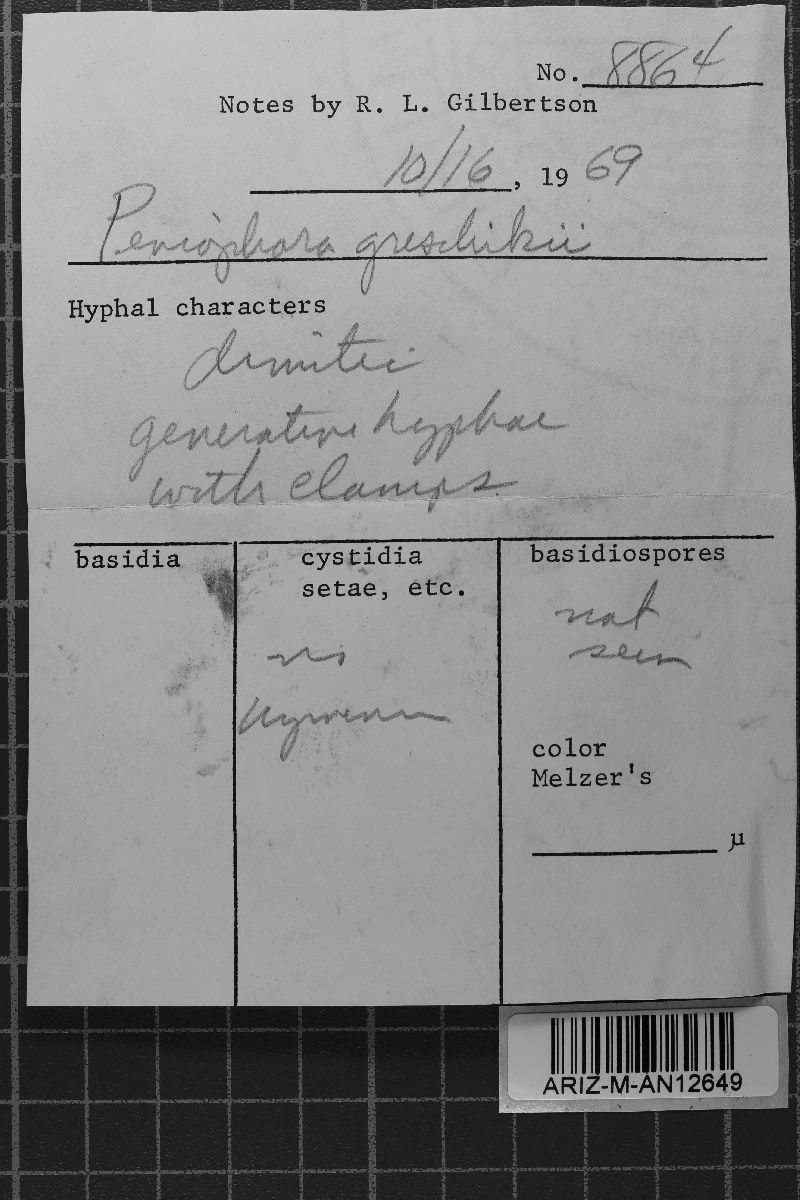 No. 8864
Notes by R. L. Gilbertson
10/16, 19 69
Peniophora greschikii
Hyphal characters
dimitic
generative hyphae
with clamps
basidia
cystidia
setae, etc.
basidiospores
no
hymenium
not
seen
color
Melzer's
µ
ARIZ-M-AN12649